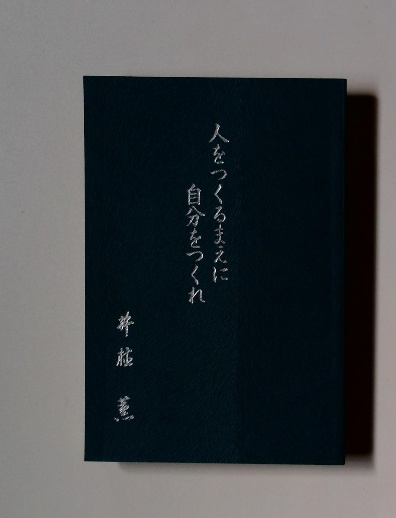 人をつくるまえに
自分をつくれ
井植 薫